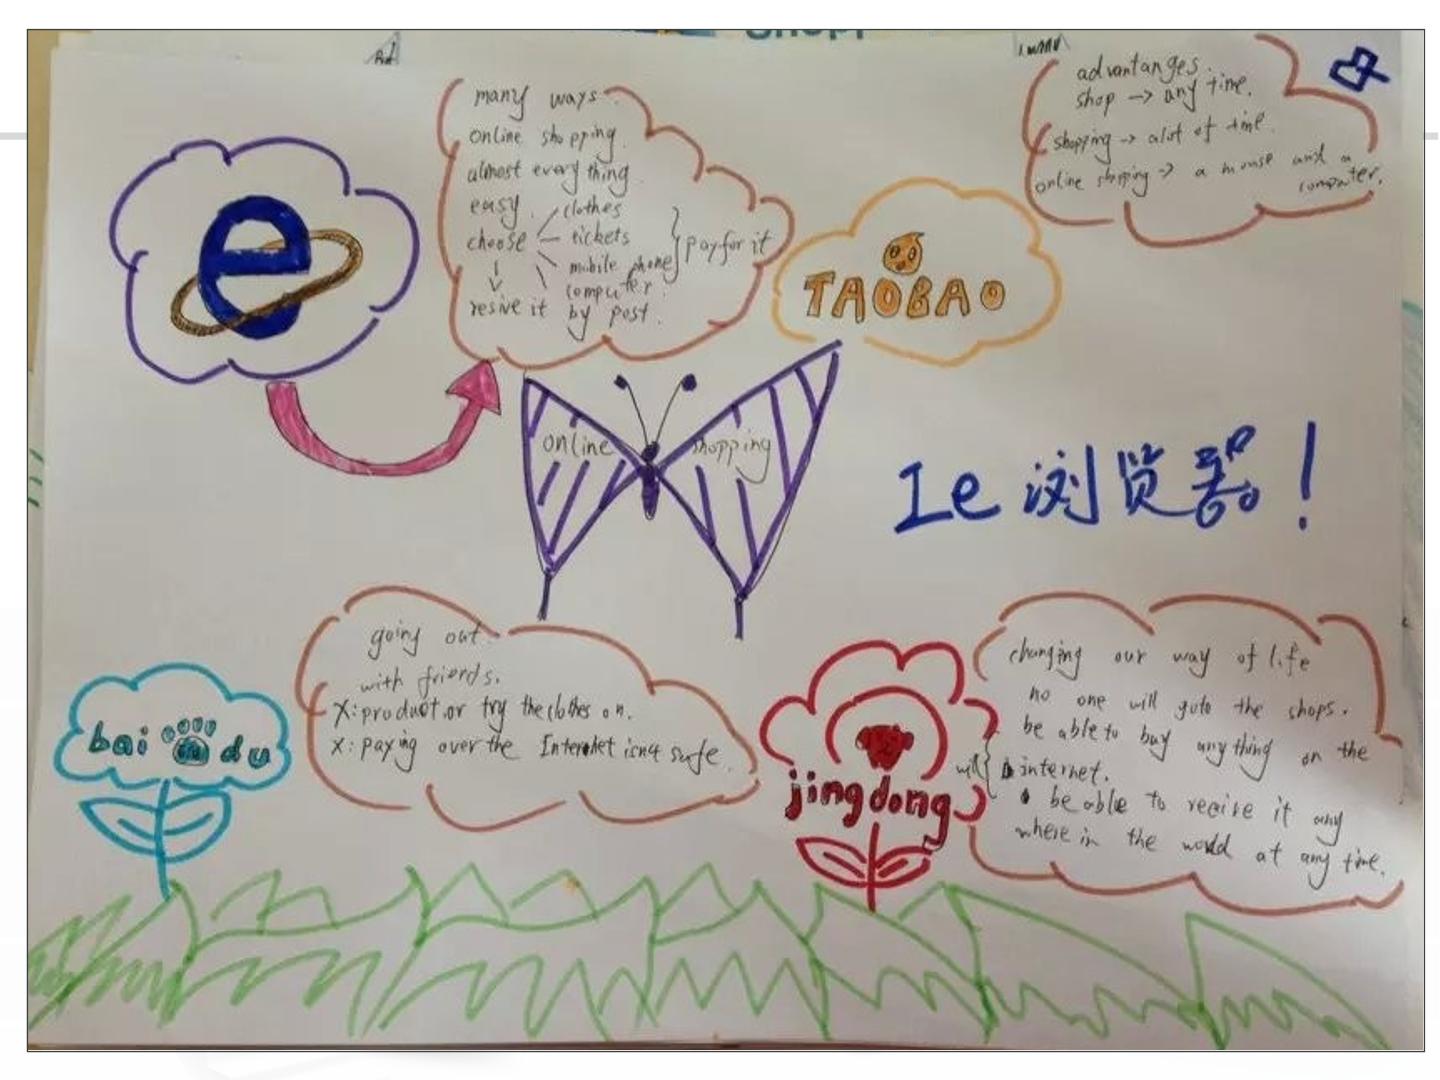 many ways
online shopping
almost everything
easy
choose
clothes
tickets
mobile phone
computer
pay for it
resive it by post.
TAOBAO
advantanges.
shop → any time.
shopping → alot of time.
online shpping → a mouse and a
computer.
online shopping
Ie 浏览器!
going out
with friends.
X: product or try the clothes on.
X: paying over the Internet isn't safe.
bai du
jingdong
changing our way of life
no one will goto the shops.
be able to buy anything on the
will
internet.
be able to receive it any
where in the world at any time.